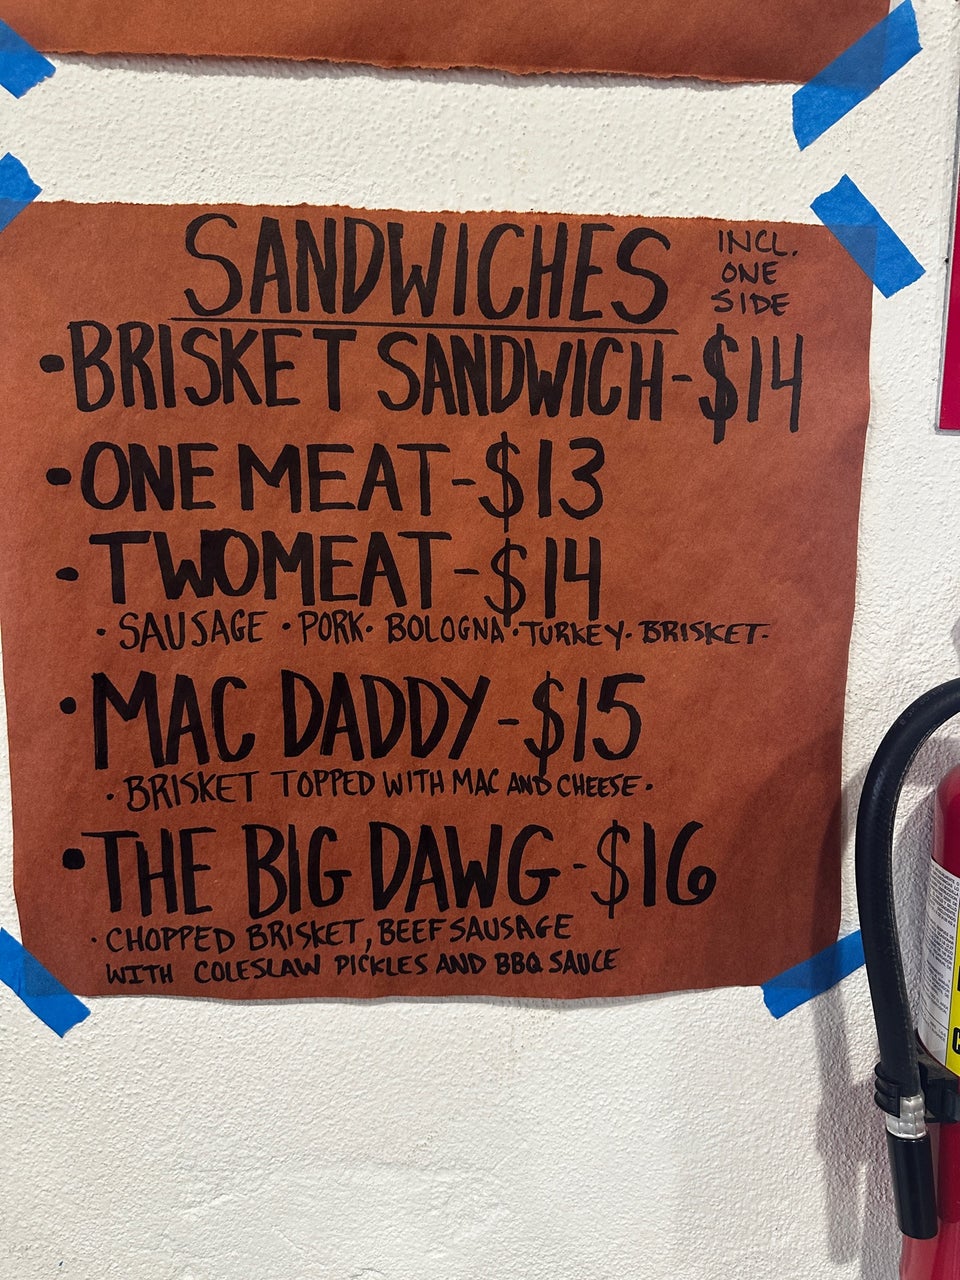 SANDWICHES
INCL.
ONE
SIDE
•BRISKET SANDWICH-$14
•ONE MEAT-$13
•TWO MEAT-$14
•SAUSAGE •PORK• BOLOGNA•TURKEY•BRISKET-
•MAC DADDY-$15
•BRISKET TOPPED WITH MAC AND CHEESE•
•THE BIG DAWG-$16
•CHOPPED BRISKET, BEEF SAUSAGE
WITH COLESLAW PICKLES AND BBQ SAUCE